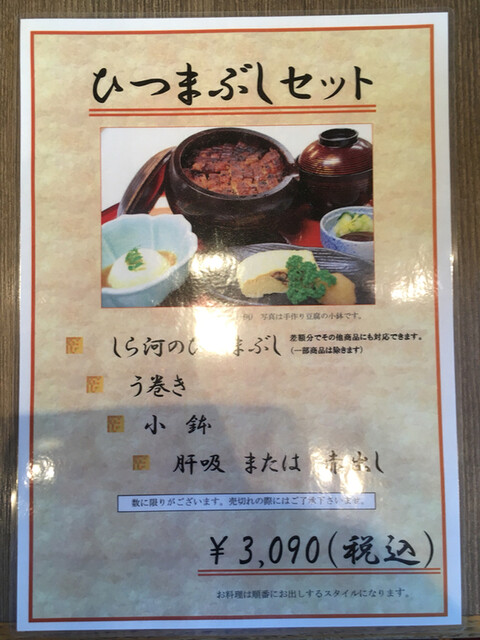 ひつまぶしセット
写真は手作り豆腐の小鉢です。
しら河のひつまぶし 差額分でその他商品にも対応できます。
(一部商品は除きます)
う巻き
小 鉢
肝吸 または 赤出し
数に限りがございます。売切れの際にはご了承下さいませ。
¥3,090(税込)
お料理は順番にお出しするスタイルになります。